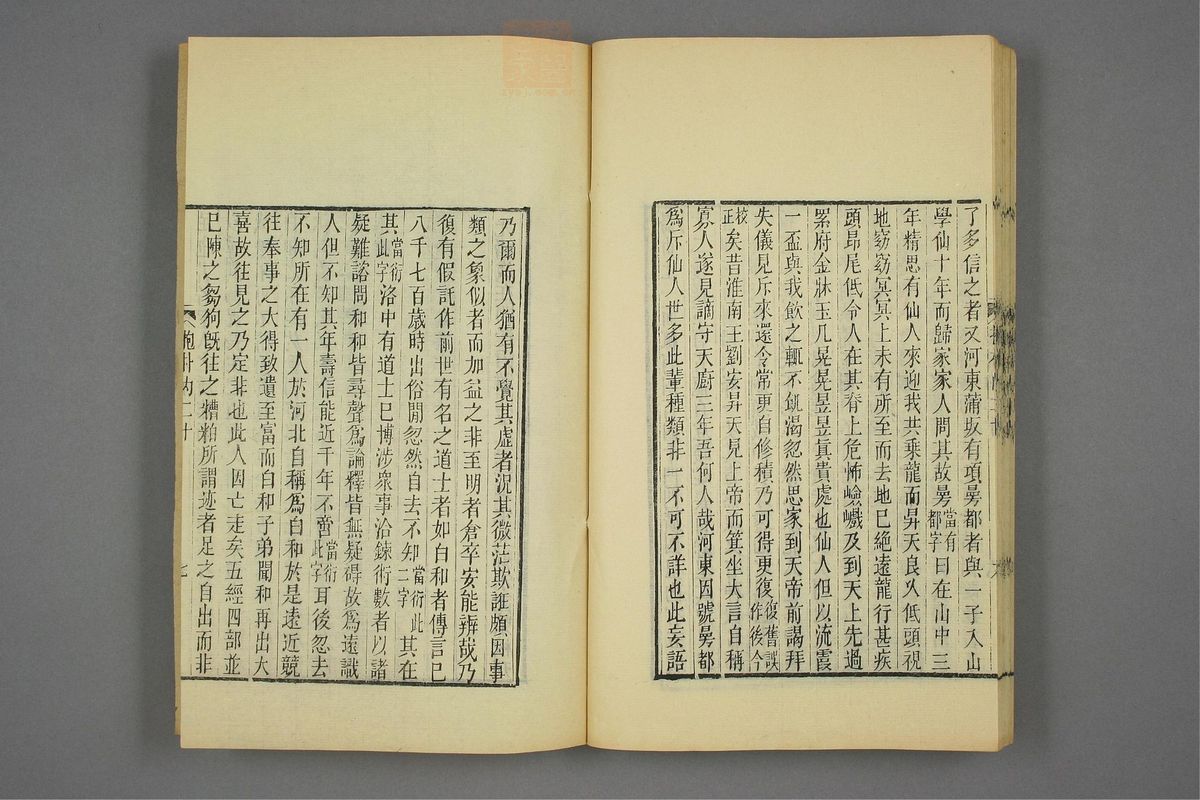 了多信之者又河東蒲坂有項㬅都者與一子入山
學仙十年而歸家家人問其故㬅當有都字曰在山中三
年精思有仙人來迎我共乘龍而昇天良久低頭視
地窈窈冥冥上未有所至而去地已絕遠龍行甚疾
頭昂尾低令人在其脊上危怖嶮巇及到天上先過
累府金牀玉几晃晃昱昱眞貴處也仙人但以流霞
一盃與我飲之輒不飢渴忽然思家到天帝前謁拜
失儀見斥來還令當更自修積乃可得更復復舊誤作後今
校正矣昔淮南王劉安昇天見上帝而箕坐大言自稱
寡人遂見謫守天廚三年吾何人哉河東因號㬅都
爲斥仙人世多此輩種類非一不可不詳也此妄語
乃爾而人猶有不覺其虛者況其微茫欺誑頗因事
類之象似者而加益之非至明者倉卒安能辨哉乃
復有假託作前世有名之道士者如白和者傳言已
八千七百歲時出俗閒忽然自去不知當衍此二字其在
其當衍此字洛中有道士已博涉衆事洽鍊術數者以諸
疑難諮問和和皆尋聲爲論釋皆無疑碍故爲遠識
人但不知其年壽信能近千年不啻當衍此字耳後忽去
不知所在有一人於河北自稱爲白和於是遠近競
往奉事之大得致遺至富而白和子弟聞和再出大
喜故往見之乃定非也此人因亡走矣五經四部並
已陳之芻狗旣往之糟粕所謂迹者足之自出而非
抱朴內二十
七